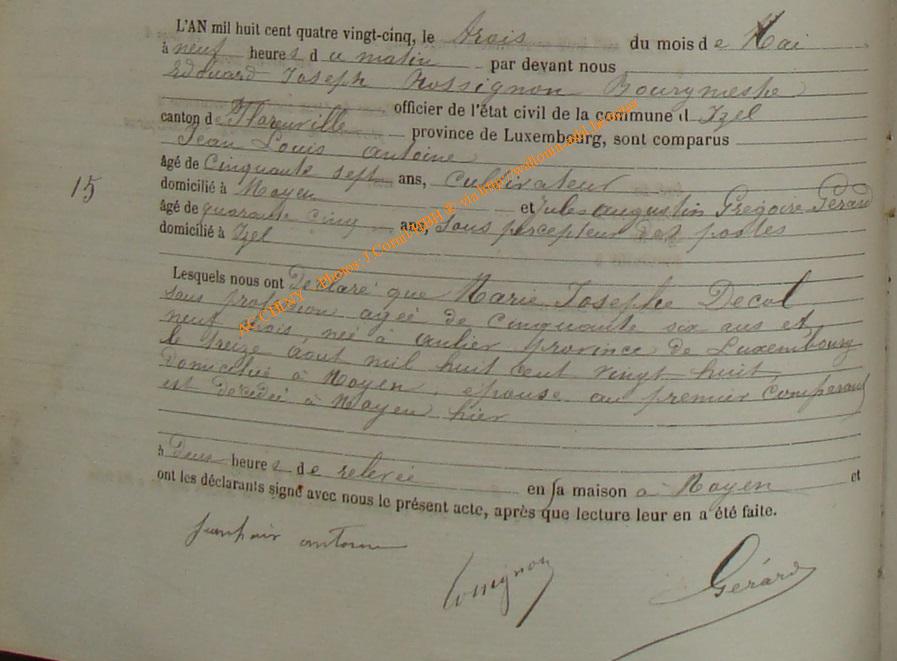 L'AN mil huit cent quatre vingt-cinq, le trois du mois de Mai
à neuf heures du matin par devant nous
Edouard Joseph Rossignon Bourgmestre
officier de l'état civil de la commune d'Izel
canton de Florenville province de Luxembourg, sont comparus
Jean Louis Antoine
âgé de Cinquante sept ans, Cultivateur
15
domicilié à Moyen et Jules Augustin Grégoire Gérard
âgé de quarante cinq ans, Sous percepteur des postes
domicilié à Izel
Lesquels nous ont Déclaré que Marie Josephe Decol
sans profession agée de Cinquante six ans et
neuf mois, née à Aulier province de Luxembourg
le treize août mil huit cent vingt huit,
domiciliée à Moyen, épouse au premier Comparant
est décédée à Moyen hier
à Deux heures de relevée en sa maison à Moyen et
ont les déclarants signé avec nous le présent acte, après que lecture leur en a été faite.
antoine
Rossignon
Gérard
AC CHINY - Photos J.Cornil GBH ® via http://wallonia.gbhl.be/actes